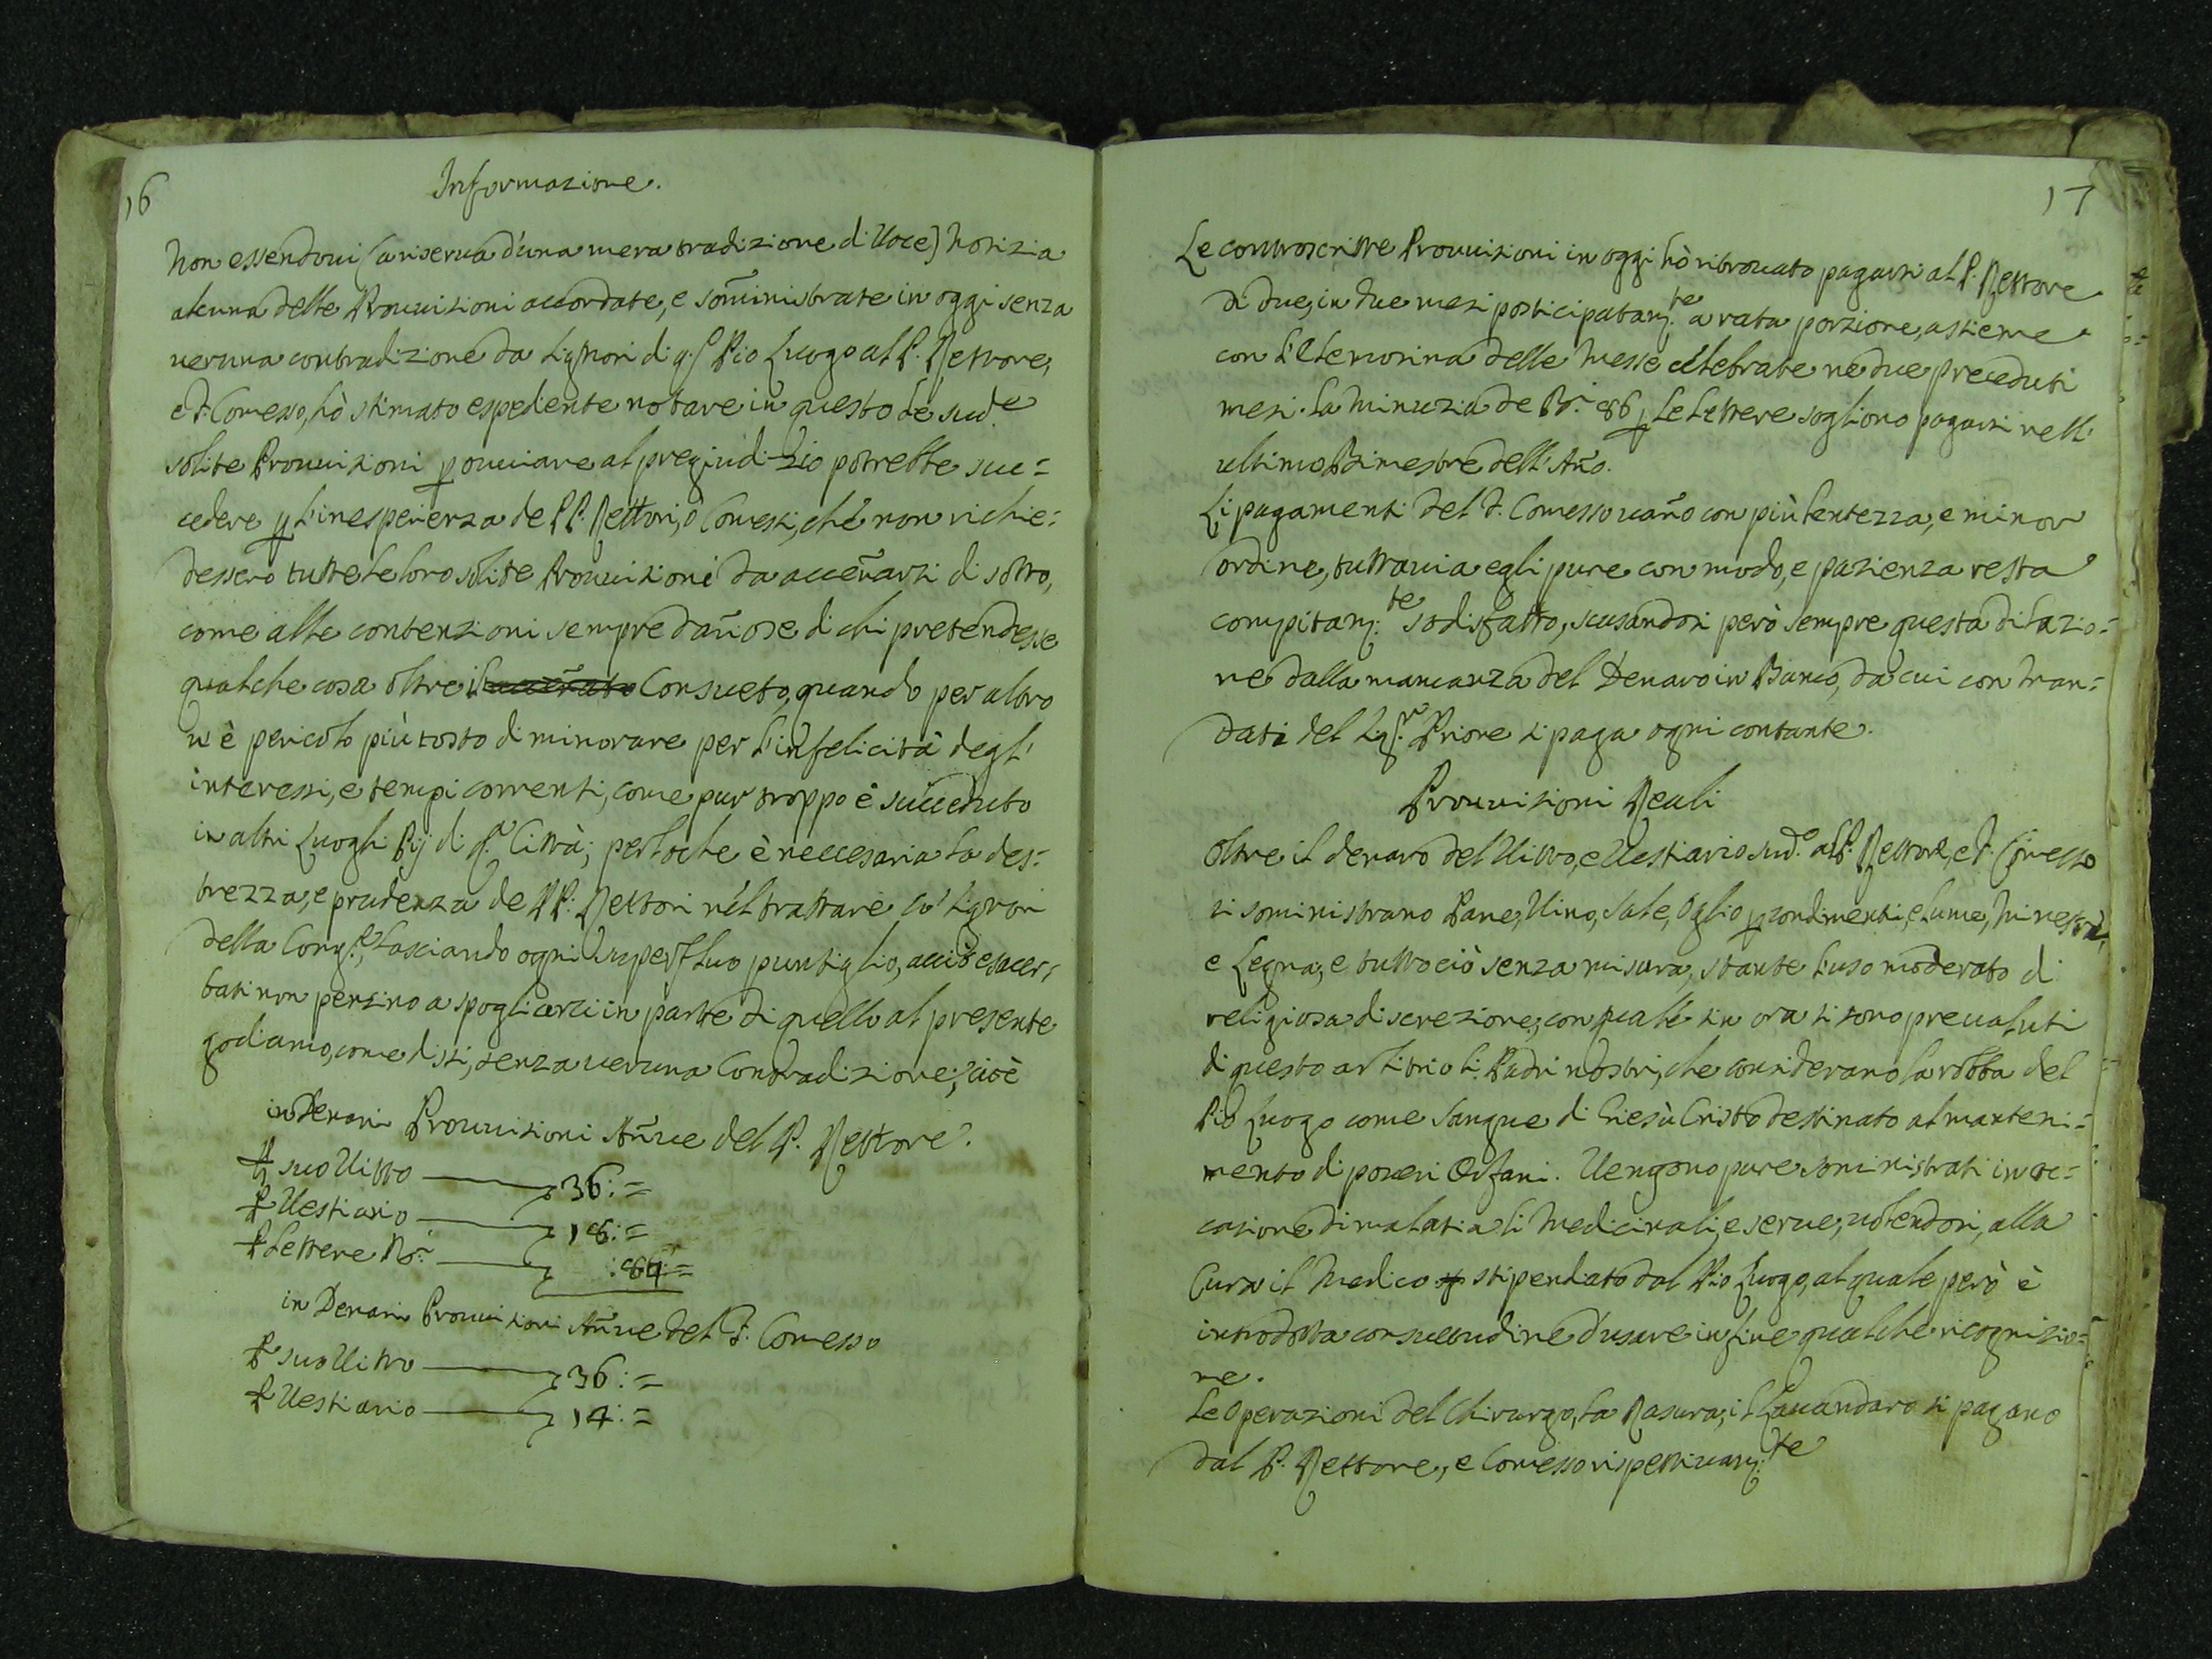 16
Informazione.
Non essendoui (a riserua d'una mera tradizione di Uoce) Notizia
alcuna delle Prouuisioni accordate, e som̃inistrate in oggi senza
ueruna contradizione da Signori di q.sto Pio Luogo al P. Rettore,
e F. Com̃esso, hò stimato espediente notare in questo le sud.e
solite Prouuisioni p ouuiare al pregiudizio potrebbe suc=
cedere p l'inesperienza de PP. Rettori, ò Com̃essi, che non richie=
dessero tutte le loro solite Prouuisioni da accen̄arsi di sotto,
come alle contenzioni sempre dan̄ose di chi pretendesse
qualche cosa oltre il accen̄ato Consueto, quando per altro
u'è pericolo più tosto di minorare per l'infelicità degl'
interessi, e tempi correnti, come pur troppo è succeduto
in altri Luoghi Pij di q.a Città; perloche è neccesaria la des=
trezza, e prudenza de PP. Rettori nel trattare co' Signori
della Cong.e, lasciando ogni superfluo puntiglio, acciò esacer=
bati non pensino a spogliarci in parte di quello al presente
godiamo, come dissi, senza ueruna Contradizione; cioè
in Denari Prouuisioni An̄ue del P. Rettore.
P suo Uitto 36:=
P Uestiario 18:=
P Lettere B.i :84:=
in Denari Prouuisioni An̄ue del F. Com̃esso
P suo Uitto 36:=
P Uestiario 14:=
17
Le controscritte Prouuisioni in oggi hò ritrouato pagarsi al P. Rettore
di due, in due mesi posticipatam.te a rata porzione, assieme
con l'Elemosina delle Messe celebrate ne due preceduti
mesi. La minuzia de B.i 86 p le Lettere sogliono pagarsi nell'
ultimo Bimestre dell'An̄o.
Li pagamenti del F. Com̃esso uan̄o con più lentezza, e minor
ordine, tuttauia egli pure con modo, e pazienza resta
compitam.te sodisfatto, scusandosi però sempre questa dilazio=
ne dalla mancanza del Denaro in Banco, da cui con Man=
dati del Sig.r Priore si paga ogni contante.
Prouuisioni Reali
Oltre il denaro del Uitto, e Uestiario sud.o al P. Rettore, e F. Com̃esso
si soministrano Pane, Uino, Sale, Oglio p condimenti, e lume, Minestra,
e Legna, e tutto ciò senza misura, stante l'uso moderato di
religiosa discrezione, con quale sin ora si sono preualuti
di questo arbitrio li Padri nostri, che considerano la robba del
Pio Luogo come Sangue di Giesù Cristo destinato al manteni=
mento di poueri Orfani. Uengono pure soministrati in oc=
casione di malatia li Medicinali, e serue, uolendosi, alla
Cura il Medico stipendiato dal Pio Luogo, al quale però è
introdotta consuetudine d'usare in fine qualche ricognizio=
ne.
Le Operazioni del Chirurgo, la Rasura, il Lauandaro si pagano
dal P. Rettore, e Com̃esso rispettiuam.te